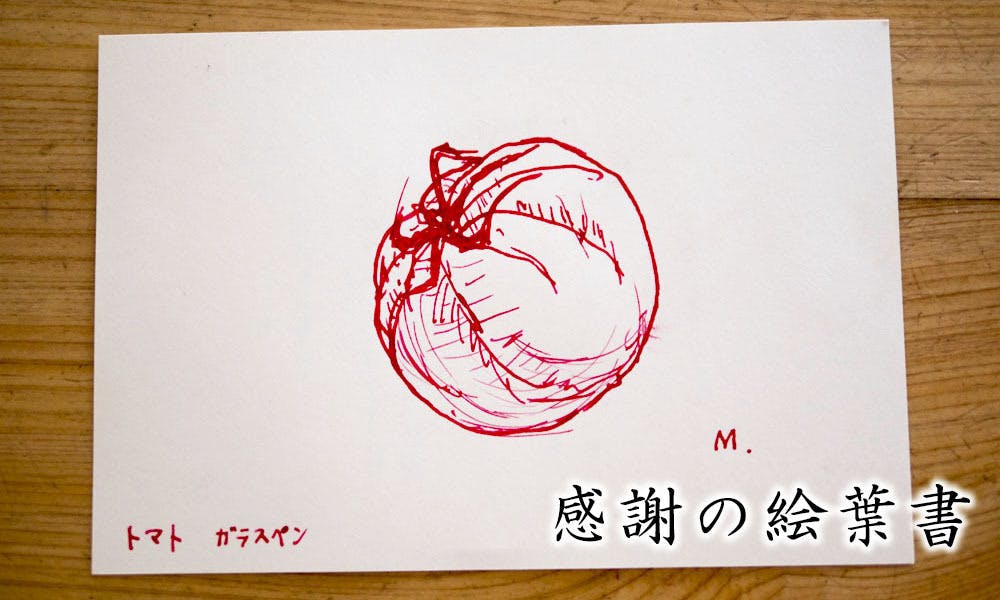 M.
感謝の絵葉書
トマト　ガラスペン